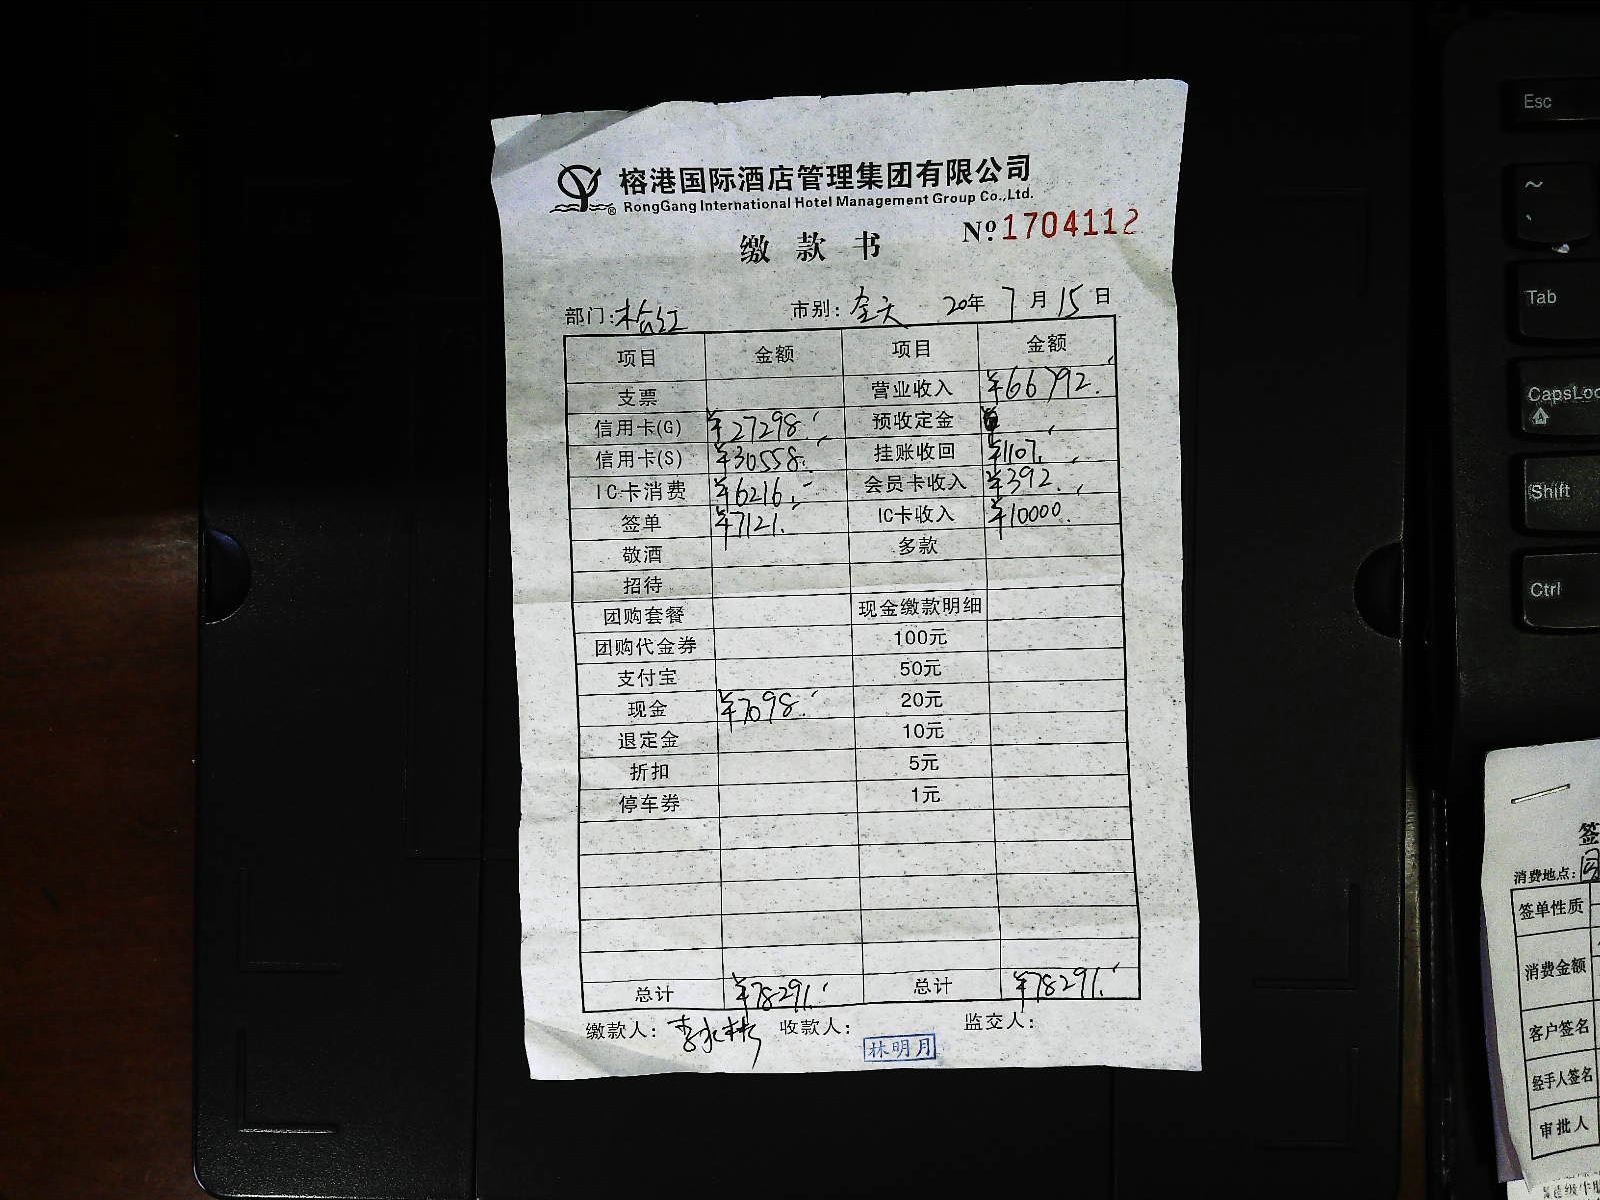 榕港国际酒店管理集团有限公司
RongGang International Hotel Management Group Co.,Ltd.
缴款书 Nº 1704112
部门: 市别:全天 20年7月15日
项目 金额 项目 金额
支票 营业收入 ¥66792.
信用卡(G) ¥27298. 预收定金
信用卡(S) ¥30558. 挂账收回 ¥1107.
IC卡消费 ¥6216. 会员卡收入 ¥392.
签单 ¥7121. IC卡收入 ¥10000.
敬酒 多款
招待
团购套餐 现金缴款明细
团购代金券 100元
支付宝 50元
现金 ¥7098. 20元
退定金 10元
折扣 5元
停车券 1元
总计 ¥78291. 总计 ¥78291.
缴款人: 收款人: 林明月 监交人:
Esc
~
Tab
CapsLoc
Shift
Ctrl
签
消费地点:
签单性质
消费金额
客户签名
经手人签名
审批人